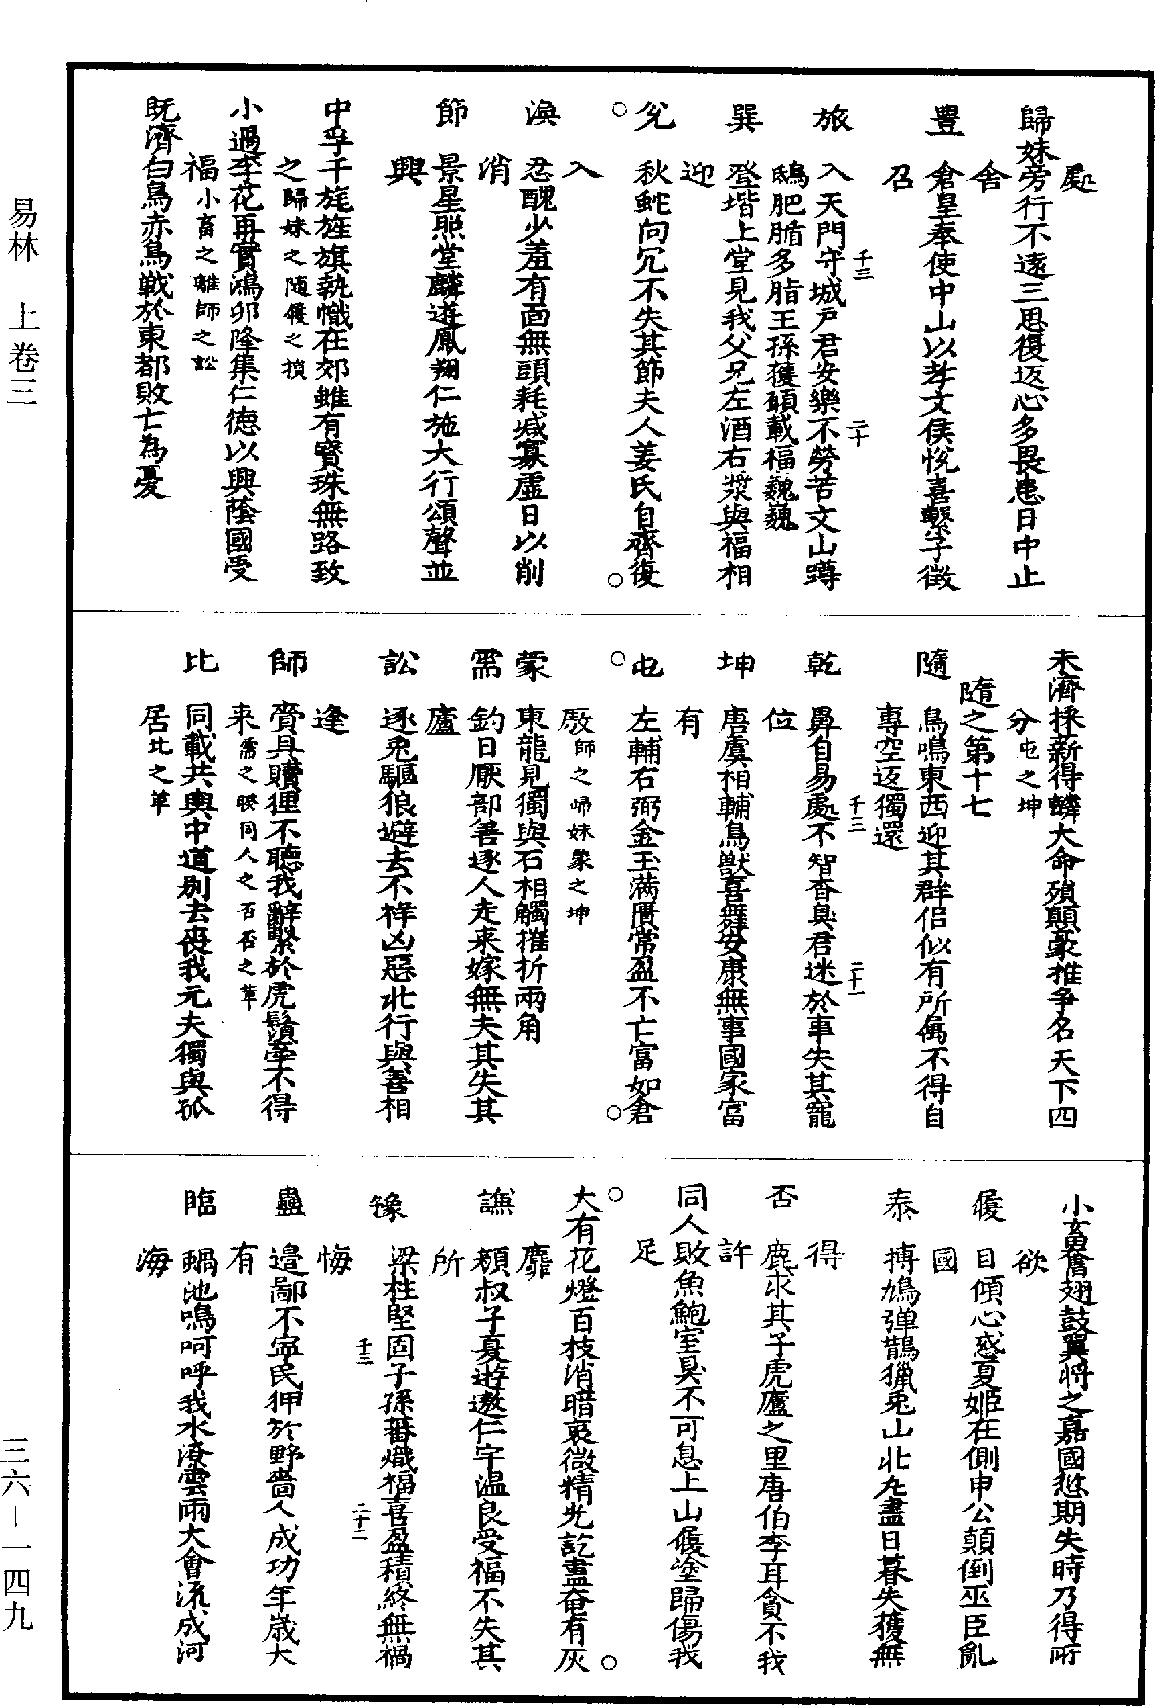 處
歸妹旁行不遠三思復返心多畏患日中止
舍
豐　倉皇奉使中山以孝文侯悅喜繫子徵
召
旅　入天門守城戶君安樂不勞苦文山蹲
鴟肥腯多脂王孫獲願載福巍巍
千三
二十
巽　登堦上堂見我父兄左酒右漿與福相
迎
兌　秋蛇向冗不失其節夫人姜氏自齊復
入
渙　忍醜少羞有面無頭耗減寡虛日以削
消
節　景星照堂麟遊鳳翔仁施大行頌聲並
興
中孚千旄旌旗執幟在郊雖有寶珠無路致
之歸妹之隨履之損
小過李花再實鴻卵隆集仁德以興蔭國受
福小畜之離師之訟
既濟白鳥赤烏戰於東都敗亡為憂
未濟採薪得麟大命殞顛豪推爭名天下四
分屯之坤
隨之第十七
隨　鳥鳴東西迎其群侶似有所屬不得自
專空返獨還
乾　鼻自易處不智香臭君迷於事失其寵
位
千三
二十一
坤　唐虞相輔鳥獸喜舞安康無事國家富
有
屯　左輔右弼金玉滿匱常盈不亡富如倉
廒師之歸妹豢之坤
蒙　東龍見獨與石相觸摧折兩角
需　釣日厭部善逐人走来嫁無夫其失其
廬
訟　逐兎驅狼避去不祥凶惡北行與善相
逢
師　齎具贖狸不聽我辭繫於虎鬚牽不得
来需之睽同人之否否之革
比　同載共輿中道別去喪我元夫獨與孤
居比之革
小畜奮翅鼓翼將之嘉國愆期失時乃得所
欲
履　目傾心惑夏姬在側申公顛倒巫臣亂
國
泰　搏鳩彈鵲獵兎山北丸盡日暮失獲無
得
否　鹿求其子虎廬之里唐伯李耳貪不我
許
同人敗魚鮑室臭不可息上山履塗歸傷我
足
大有花燈百枝消暗衰微精光訖盡奄有灰
靡
謙　顏叔子夏遊遨仁宇温良受福不失其
所
豫　梁柱堅固子孫蕃熾福喜盈積終無禍
悔
千三
二十二
蠱　邉鄙不寧民狎於野嗇人成功年歲大
有
臨　蝸池鳴呵呼我水潦雲雨大會流成河
海
易林　上卷三
三六－一四九